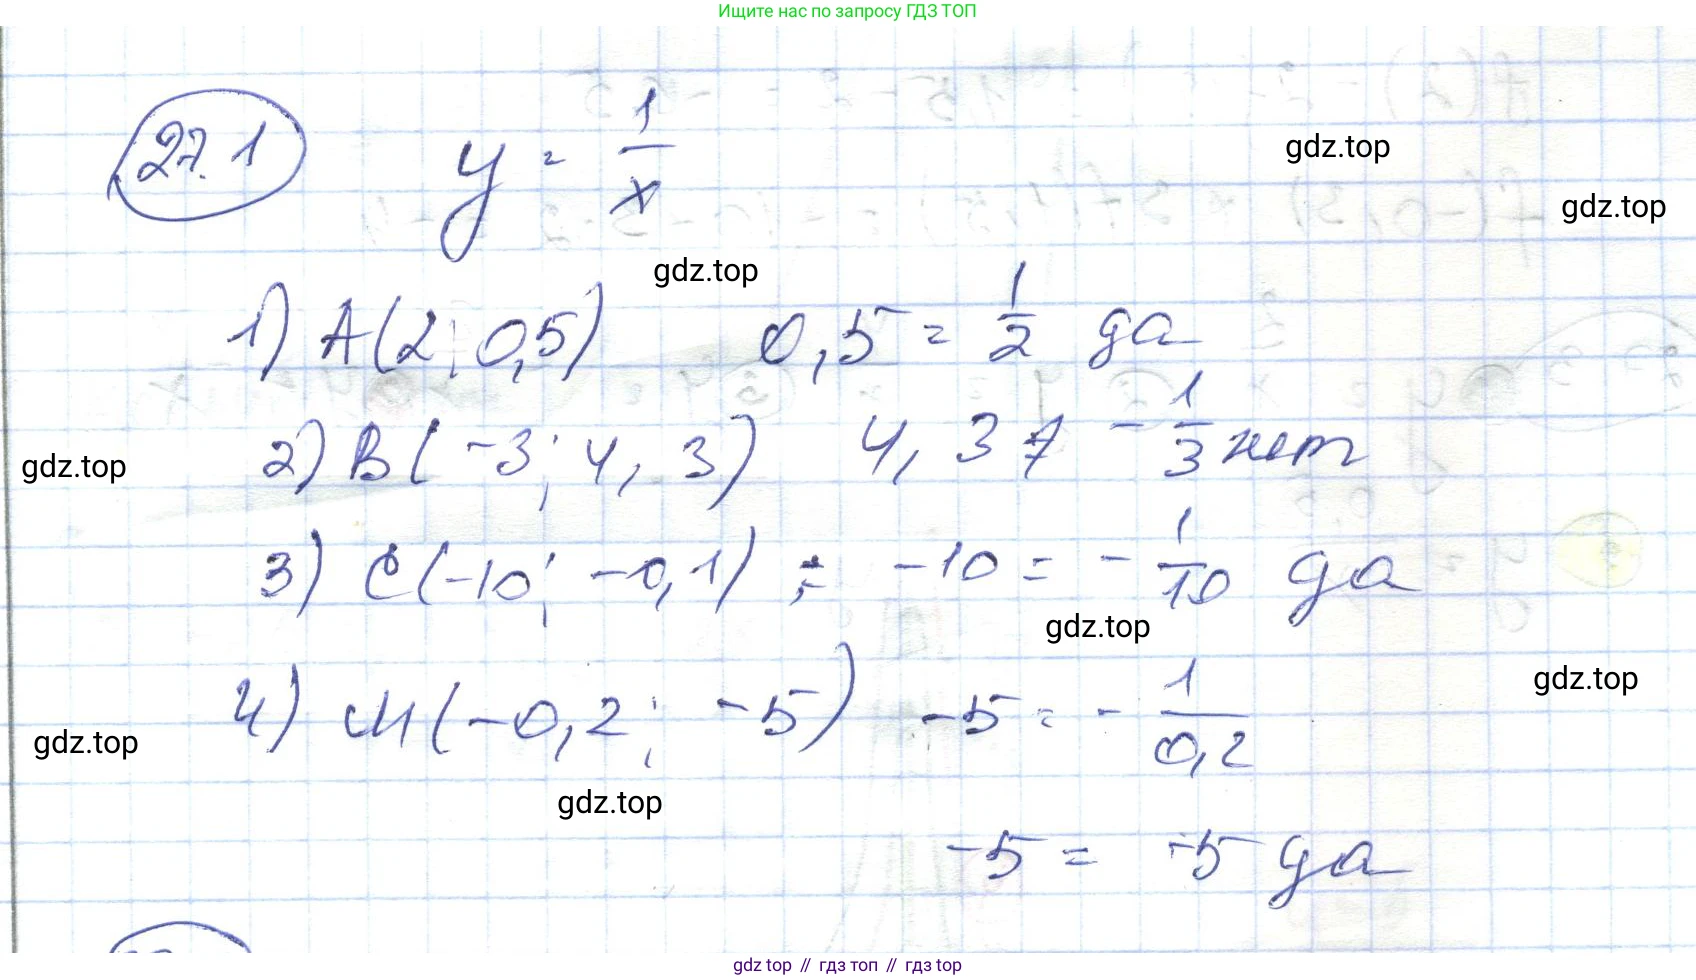 Ищите нас по запросу ГДЗ ТОП
27.1 y = 1/x
gdz.top
gdz.top
gdz.top
1) A(2; 0,5) 0,5 = 1/2 да
2) B(-3; 4,3) 4,3 ≠ -1/3 нет
gdz.top
3) C(-10; -0,1); -10 = -1/10 да
gdz.top
gdz.top
4) M(-0,2; -5) -5 = -1/0,2
gdz.top
gdz.top
-5 = -5 да
gdz top // гдз топ // gdz top